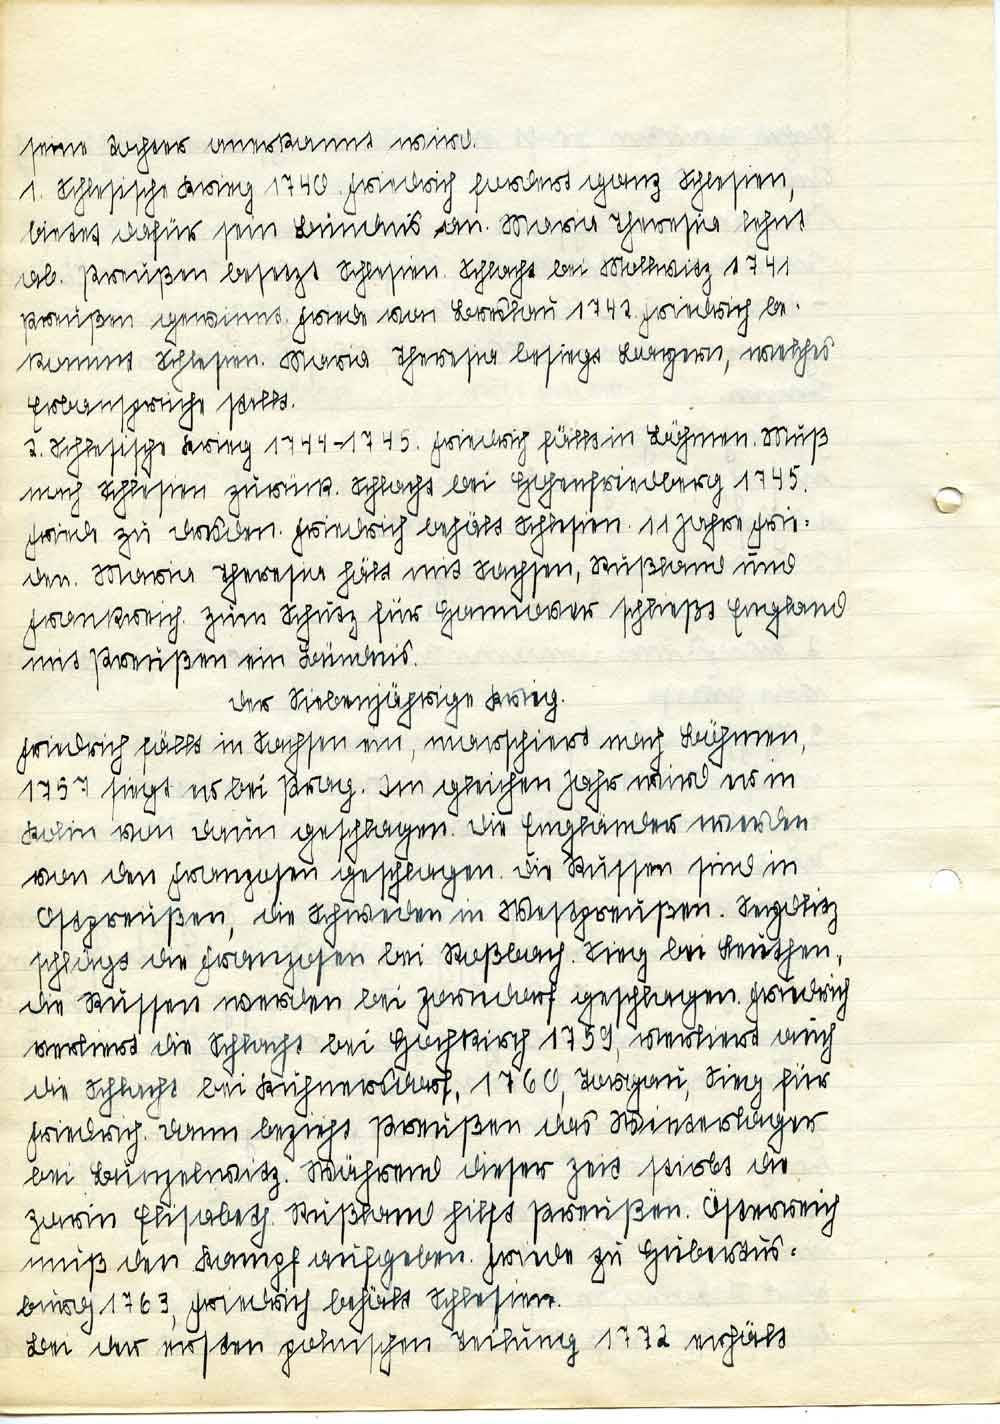 seine Tochter anerkannt wird.
1. Schlesische Krieg 1740. Friedrich fordert ganz Schlesien,
bietet dafür sein Bündnis an. Maria Theresia lehnt
ab. Preußen besetzt Schlesien. Schlacht bei Mollwitz 1741
Preußen gewinnt. Friede von Breslau 1742. Friedrich be-
kommt Schlesien. Maria Theresia besiegt Bayern, welches
Erbansprüche stellt.
2. Schlesische Krieg 1744-1745. Friedrich fällt in Böhmen. Muß
nach Schlesien zurück. Schlacht bei Hohenfriedberg 1745.
Friede zu Dresden. Friedrich behält Schlesien. 11 Jahre Frie-
den. Maria Theresia hält mit Sachsen, Rußland und
Frankreich. Zum Schutz für Hannover schließt England
mit Preußen ein Bündnis.
Der Siebenjährige Krieg.
Friedrich fällt in Sachsen ein, marschiert nach Böhmen,
1757 siegt er bei Prag. Im gleichen Jahr wird er in
Kolin von Daun geschlagen. Die Engländer werden
von den Franzosen geschlagen. Die Russen sind in
Ostpreußen, die Schweden in Westpreußen. Seydlitz
schlägt die Franzosen bei Roßbach. Sieg bei Leuthen,
die Russen werden bei Zorndorf geschlagen. Friedrich
verliert die Schlacht bei Hochkirch 1759, verliert auch
die Schlacht bei Kuhnersdorf, 1760, Torgau, Sieg für
Friedrich. Dann bezieht Preußen das Winterlager
bei Bunzelwitz. Während dieser Zeit stirbt die
Zarin Elisabeth. Rußland hilft Preußen. Österreich
muß den Kampf aufgeben. Friede zu Hubertus-
burg 1763, Friedrich behält Schlesien.
Bei der ersten polnischen Teilung 1772 erhält